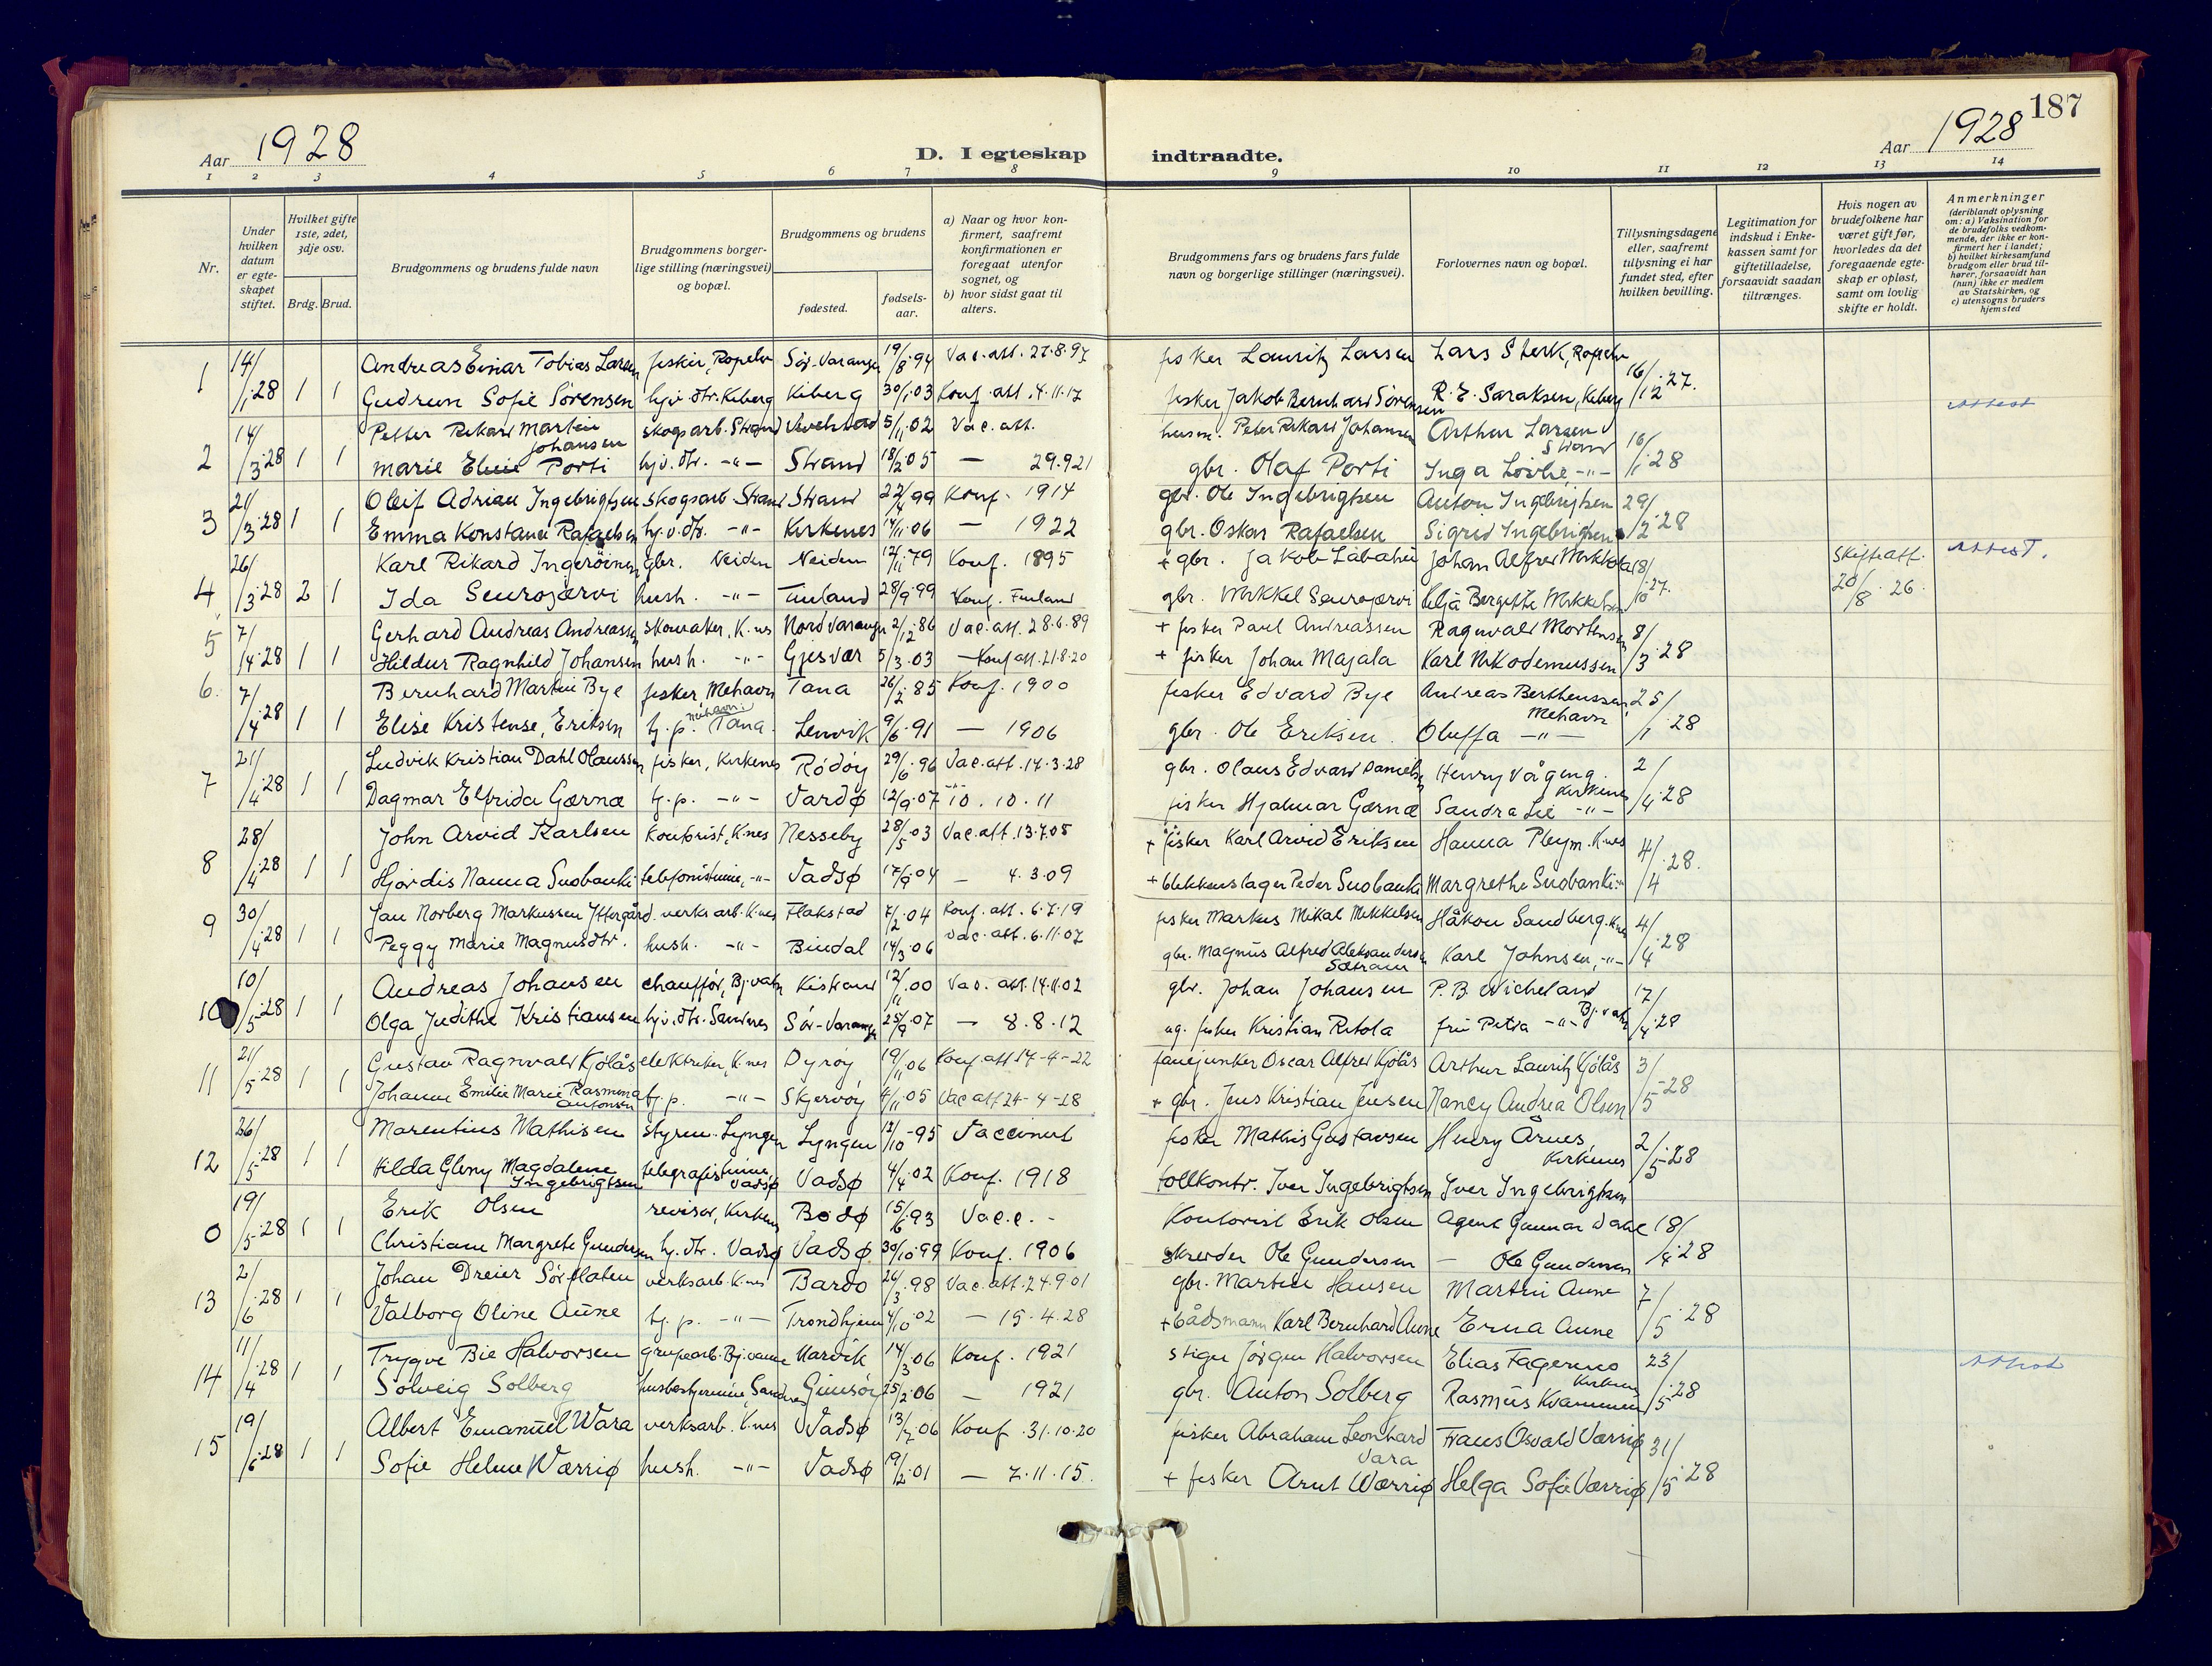 187
Aar 1928
D. I egteskap
indtraadte.
Aar 1928
1 2 3 4 5 6 7 8 9 10 11 12 13 14
Nr.
Under hvilken datum er egteskapet stiftet.
Hvilket gifte 1ste, 2det, 3dje osv.
Brdg. Brud.
Brudgommens og brudens fulde navn
Brudgommens borgerlige stilling (næringsvei) og bopæl.
Brudgommens og brudens
fødested.
fødselsaar.
a) Naar og hvor konfirmert, saafremt konfirmationen er foregaat utenfor sognet, og
b) hvor sidst gaat til alters.
Brudgommens fars og brudens fars fulde navn og borgerlige stillinger (næringsvei).
Forlovernes navn og bopæl.
Tillysningsdagene eller, saafremt tillysning ei har fundet sted, efter hvilken bevilling.
Legitimation for indskud i Enkekassen samt for giftetilladelse, forsaavidt saadan tiltrænges.
Hvis nogen av brudefolkene har været gift før, hvorledes da det foregaaende egteskap er opløst, samt om lovlig skifte er holdt.
Anmerkninger (deriblandt oplysning om: a) Vaksination for de brudefolks vedkommende, der ikke er konfirmert her i landet; b) hvilket kirkesamfund brudgom eller brud tilhører, forsaavidt han (hun) ikke er medlem av Statskirken, og c) utensogns bruders hjemsted
1 14/1.28 1 1 Andreas Einar Tobias Larsen fisker, Ropelv Sør-Varanger 19/8.94 Vac. att. 27.8.97 fisker Lauritz Larsen Lars Sterk, Ropelv 16/12.27.
Gudrun Sofie Sørensen hjv. dtr. Kiberg Kiberg 30/1.03 Konf. att. 4.11.17 fisker Jakob Bernhard Sørensen R. E. Saraksen, Kiberg
Attest
2 14/3.28 1 1 Petter Rikard Martin Johansen skogsarb. Strand 5/11.02 Vac. att. husm. Peter Rikard Johansen Arthur Larsen Strand 16/1.28
Marie Elvie Porti hjv. dtr. -"- Strand 18/2.05 — 29.9.21 gbr. Olaf Porti Inga -"-
3 21/3.28 1 1 Oleif Adrian Ingebrigtsen skogsarb. Strand Strand 22/4.99 Konf. 1914 gbr. Ole Ingebrigtsen Anton Ingebrigtsen 29/2.28
Emma Konstance Rafaelsen hj.v.dtr. -"- Kirkenes 14/11.06 — 1922 gbr. Oskar Rafaelsen Sigrid Ingebrigtsen
4 26/3.28 2 1 Karl Rikard Ingerøinen gbr. Neiden Neiden 12/11.79 Konf. 1895 + gbr. Jakob Labahei Johan Alfred Mikkola 18/10.27. Skifteatt. 20/8.26. Attest.
Ida Seurojærvi hush. -"- Finland 28/9.99 Konf. Finland gbr. Mikkel Seurojærvi Bergitte Mikkelsen
5 7/4.28 1 1 Gerhard Andreas Andreassen skomaker, K.nes Nord Varanger 2/12.86 Vac. att. 28.6.89 + fisker Paul Andreassen Ragnvald Mortensen 8/3.28
Hildur Ragnhild Johansen hush. -"- Gjesvær 5/3.03 — Konf att. 21.8.20 + fisker Johan Majala Karl Nikodemussen
6. 7/4.28 1 1 Bernhard Martin Bye fisker, Mehavn Tana 26/2.85 Konf. 1900 fisker Edvard Bye Andreas Bertheussen, Mehavn 25/1.28
Elise Kristense, Eriksen hj.p. Mehavn. Tana. Lenvik 9/6.91 — 1906 gbr. Ole Eriksen. Oluffa -"-
7 21/4.28 1 1 Ludvik Kristian Dahl Olaussen fisker, Kirkenes Rødøy 29/6.96 Vac. att. 14.3.28 gbr. Olaus Edvard Danielsen Henry Vågeng. Kirkenes 2/4.28
Dagmar Elfrida Gærnæ hj.p. -"- Vardø 12/9.07 10.10.11 fisker Hjalmar Gærnæ Sandra Lie -"-
8 28/4.28 1 1 John Arvid Karlsen kontorist, K.nes Nesseby 28/5.03 Vac. att. 13.7.05 + fisker Karl Arvid Eriksen Hanna Pleym. K.nes 4/4.28.
Hjørdis Nanna Suobanki telefonistinne, -"- Vadsø 17/9.04 — 4.3.09 + blikkenslager Peder Suobanki Margrethe Suobanki -"-
9 30/4.28 1 1 Jan Norberg Markussen Yttergård. verksarb. K.nes Flakstad 7/2.04 Konf. att. 6.7.19 fisker Markus Mikal Mikkelsen Håkon Sandberg. K.nes 4/4.28
Peggy Marie Magnusdtr. hush. -"- Bindal 14/3.06 Vac. att. 6.11.07 gbr. Magnus Alfred Aleksandersen Sætran Karl Johnsen, -"-
10 10/5.28 1 1 Andreas Johansen chauffør, Bj.vatn Kistrand 12/11.00 Vac. att. 14.11.02 gbr. Johan Johansen P. B. Wickeland Bj.vatn 17/4.28
Olga Judithe Kristiansen hjv. dtr. Sandnes Sør-Varanger 25/9.07 — 8.8.12 ug. fisker Kristian Ritola frú Petra -"-
11 21/5.28 1 1 Gustav Ragnvald Kjølås elektriker, K.nes Dyrøy 19/11.06 Konf. att 17-4-22 fanejunker Oscar Alfred Kjølås Arthur Lauritz Kjølås 3/5-28
Johanne Emilie Marie Rasmina Antonsen hj.p. -"- Skjervøy 4/11.05 Vac att 24-4-28 + gbr. Jens Kristian Jensen Nancy Andrea Olsen
12 26/5.28 1 1 Marentius Mathisen styrm. Lyngen Lyngen 12/10-95 Vaccinert fisker Mathis Gustavsen Henry Årnes, Kirkenes 2/5-28
Hilda Gleny Magdalene Ingebrigtsen telegrafistinne, Vadsø Vadsø 4/4.02 Konf. 1918 tollkontr. Iver Ingebrigtsen Iver Ingebrigtsen
0 19/5-28 1 1 Erik Olsen revisor, Kirkenes Bodø 15/6.93 Vacc. - Kontorist Erik Olsen Agent Gunnar Dahl 18/4.28
Christiane Margrete Gundersen hj. dtr. Vadsø Vadsø 30/10.99 Konf. 1906 skredder Ole Gundersen — Ole Gundersen
13 2/6.28 1 1 Johan Dreier Sørflaten verksarb. K.nes Bardo 26/3.98 Vac. att. 24.9.01 gbr. Martin Hansen Martin Aune 7/5.28
Valborg Oline Aune hj.p. -"- Trondhjem 4/10.02 — 19.4.28 + bådsmann Karl Bernhard Aune Erna Aune
14 11/4.28 1 1 Trygve Bie Halvorsen grupearb. Bj.vanne Narvik 14/3.06 Konf. 1921 stiger Jørgen Halvorsen Elias Fagermo Kirkenes 23/5.28 Attest
Solveig Solberg husbestyrerinne, Sandnes Gimsøy 25/2.06 — 1921 gbr. Anton Solberg Rasmus Kvammen
15 19/6.28 1 1 Albert Emanuel Wara verksarb. K.nes Vadsø 13/7.06 Konf. 31.10.20 fisker Abraham Leonhard Vara Frans Osvald Værriø 31/5.28
Sofie Helene Wærriø hush. -"- Vadsø 19/2.01 — 7.11.15. + fisker Arnt Wærriø Helga Sofie Værriø